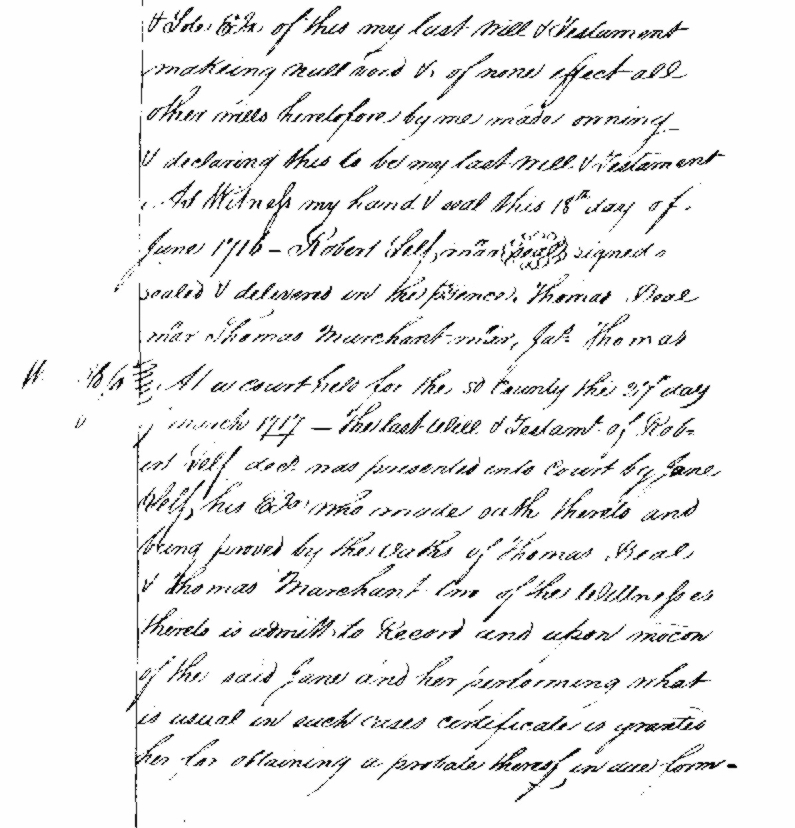 & Sole Exx. of this my last Will & Testament
makeing null void & of none effect all
other wills heretofore by me made owning
& declaring this to be my last will & Testament
As Witness my hand & seal this 18th day of
June 1716 – Robert Self, mar seal signed
sealed & delivered in the presence. Thomas Beal
mar Thomas Marchant mar, Jas. Thomas
At a court held for the sd County the 27th day
of march 1717 – The last Will & Testamt. of Rob-
ert Self decd. was presented into Court by Jane
Self, his Exx. who made oath thereto and
being proved by the oaths of Thomas Beal
& Thomas Marchant two of the Wittnesses
thereto is admitt. to Record and upon mocon
of the said Jane and her performing what
is usual in such cases certificate is granted
her for obtaining a probate thereof, in due form –